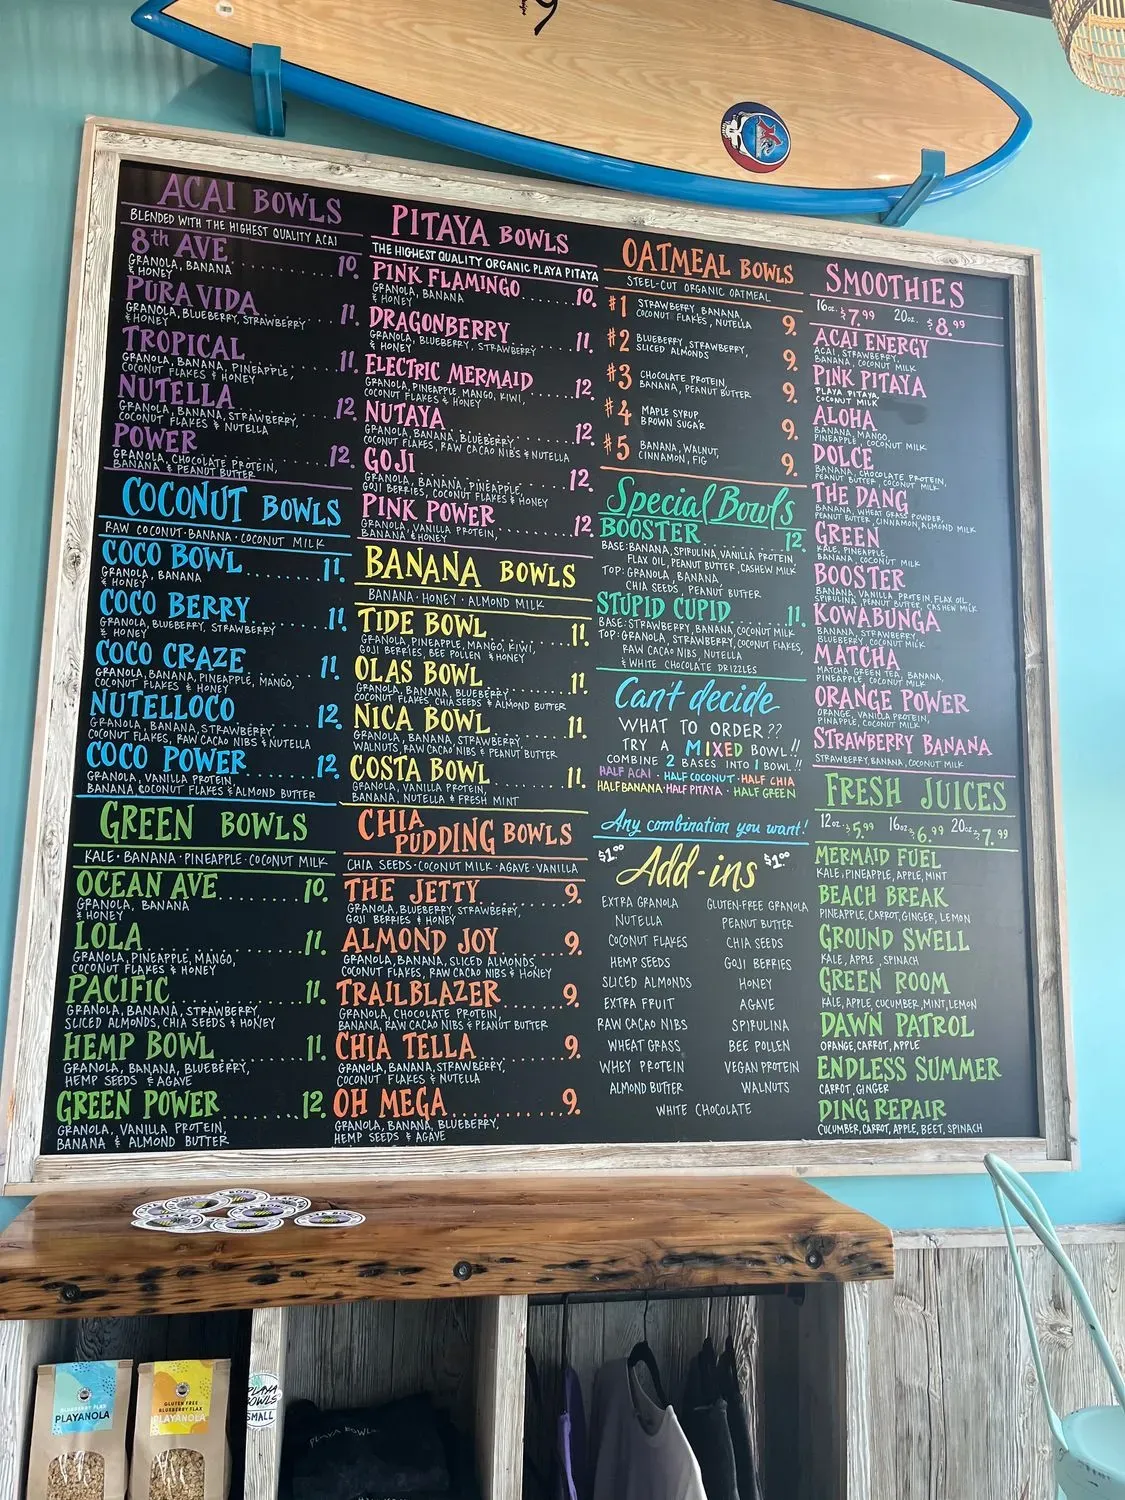 ACAI BOWLS
BLENDED WITH THE HIGHEST QUALITY ACAI
8th AVE ........ 10.
GRANOLA, BANANA
& HONEY
PURA VIDA ........ 11.
GRANOLA, BLUEBERRY, STRAWBERRY
& HONEY
TROPICAL ........ 11.
GRANOLA, BANANA, PINEAPPLE,
COCONUT FLAKES & HONEY
NUTELLA ........ 12.
GRANOLA, BANANA, STRAWBERRY,
COCONUT FLAKES & NUTELLA
POWER ........ 12.
GRANOLA, CHOCOLATE PROTEIN,
BANANA & PEANUT BUTTER
COCONUT BOWLS
RAW COCONUT · BANANA · COCONUT MILK
COCO BOWL ....... 11.
GRANOLA, BANANA
& HONEY
COCO BERRY ....... 11.
GRANOLA, BLUEBERRY, STRAWBERRY
& HONEY
COCO CRAZE ....... 11.
GRANOLA, BANANA, PINEAPPLE, MANGO,
COCONUT FLAKES & HONEY
NUTELLOCO ....... 12.
GRANOLA, BANANA, STRAWBERRY,
COCONUT FLAKES, RAW CACAO NIBS & NUTELLA
COCO POWER ....... 12.
GRANOLA, VANILLA PROTEIN,
BANANA COCONUT FLAKES & ALMOND BUTTER
GREEN BOWLS
KALE · BANANA · PINEAPPLE · COCONUT MILK
OCEAN AVE ........ 10.
GRANOLA, BANANA
& HONEY
LOLA ........ 11.
GRANOLA, PINEAPPLE, MANGO,
COCONUT FLAKES & HONEY
PACIFIC ........ 11.
GRANOLA, BANANA, STRAWBERRY,
SLICED ALMONDS, CHIA SEEDS & HONEY
HEMP BOWL ........ 11.
GRANOLA, BANANA, BLUEBERRY,
HEMP SEEDS & AGAVE
GREEN POWER ........ 12.
GRANOLA, VANILLA PROTEIN,
BANANA & ALMOND BUTTER
PITAYA BOWLS
THE HIGHEST QUALITY ORGANIC PLAYA PITAYA
PINK FLAMINGO ...... 10.
GRANOLA, BANANA
& HONEY
DRAGONBERRY ...... 11.
GRANOLA, BLUEBERRY, STRAWBERRY
& HONEY
ELECTRIC MERMAID ..... 12.
GRANOLA, PINEAPPLE, MANGO, KIWI,
COCONUT FLAKES & HONEY
NUTAYA ........ 12.
GRANOLA, BANANA, BLUEBERRY,
COCONUT FLAKES, RAW CACAO NIBS & NUTELLA
GOJI ........ 12.
GRANOLA, BANANA, PINEAPPLE,
GOJI BERRIES, COCONUT FLAKES & HONEY
PINK POWER ........ 12.
GRANOLA, VANILLA PROTEIN,
BANANA & HONEY
BANANA BOWLS
BANANA · HONEY · ALMOND MILK
TIDE BOWL ........ 11.
GRANOLA, PINEAPPLE, MANGO, KIWI,
GOJI BERRIES, BEE POLLEN & HONEY
OLAS BOWL ........ 11.
GRANOLA, BANANA, BLUEBERRY,
COCONUT FLAKES, CHIA SEEDS & ALMOND BUTTER
NICA BOWL ........ 11.
GRANOLA, BANANA, STRAWBERRY,
WALNUTS, RAW CACAO NIBS & PEANUT BUTTER
COSTA BOWL ........ 11.
GRANOLA, VANILLA PROTEIN,
BANANA, NUTELLA & FRESH MINT
CHIA PUDDING BOWLS
CHIA SEEDS · COCONUT MILK · AGAVE · VANILLA
THE JETTY ........ 9.
GRANOLA, BLUEBERRY, STRAWBERRY,
GOJI BERRIES & HONEY
ALMOND JOY ........ 9.
GRANOLA, BANANA, SLICED ALMONDS,
COCONUT FLAKES, RAW CACAO NIBS & HONEY
TRAILBLAZER ........ 9.
GRANOLA, CHOCOLATE PROTEIN,
BANANA, RAW CACAO NIBS & PEANUT BUTTER
CHIA TELLA ........ 9.
GRANOLA, BANANA, STRAWBERRY,
COCONUT FLAKES & NUTELLA
OH MEGA ........ 9.
GRANOLA, BANANA, BLUEBERRY,
HEMP SEEDS & AGAVE
OATMEAL BOWLS
STEEL-CUT ORGANIC OATMEAL
#1 STRAWBERRY, BANANA, 9.
COCONUT FLAKES, NUTELLA
#2 BLUEBERRY, STRAWBERRY, 9.
SLICED ALMONDS
#3 CHOCOLATE PROTEIN, 9.
BANANA, PEANUT BUTTER
#4 MAPLE SYRUP 9.
BROWN SUGAR
#5 BANANA, WALNUT, 9.
CINNAMON, FIG
Special Bowls
BOOSTER ........ 12.
BASE: BANANA, SPIRULINA, VANILLA PROTEIN
FLAX OIL, PEANUT BUTTER, CASHEW MILK
TOP: GRANOLA, BANANA,
CHIA SEEDS, PEANUT BUTTER
STUPID CUPID ........ 11.
BASE: STRAWBERRY, BANANA, COCONUT MILK
TOP: GRANOLA, STRAWBERRY, COCONUT FLAKES,
RAW CACAO NIBS, NUTELLA
& WHITE CHOCOLATE DRIZZLES
Can't decide
WHAT TO ORDER??
TRY A MIXED BOWL!!
COMBINE 2 BASES INTO 1 BOWL!!
HALF ACAI · HALF COCONUT · HALF CHIA
HALF BANANA · HALF PITAYA · HALF GREEN
Any combination you want!
$1.00 Add-ins $1.00
EXTRA GRANOLA GLUTEN-FREE GRANOLA
NUTELLA PEANUT BUTTER
COCONUT FLAKES CHIA SEEDS
HEMP SEEDS GOJI BERRIES
SLICED ALMONDS HONEY
EXTRA FRUIT AGAVE
RAW CACAO NIBS SPIRULINA
WHEAT GRASS BEE POLLEN
WHEY PROTEIN VEGAN PROTEIN
ALMOND BUTTER WALNUTS
WHITE CHOCOLATE
SMOOTHIES
16oz. $7.99 20oz. $8.99
ACAI ENERGY
ACAI, STRAWBERRY,
BANANA, COCONUT MILK
PINK PITAYA
PLAYA PITAYA,
COCONUT MILK
ALOHA
BANANA, MANGO,
PINEAPPLE, COCONUT MILK
DOLCE
BANANA, CHOCOLATE PROTEIN,
PEANUT BUTTER, COCONUT MILK
THE DANG
BANANA, WHEAT GRASS POWDER,
PEANUT BUTTER, CINNAMON, ALMOND MILK
GREEN
KALE, PINEAPPLE,
BANANA, COCONUT MILK
BOOSTER
BANANA, VANILLA PROTEIN, FLAX OIL,
SPIRULINA, PEANUT BUTTER, CASHEW MILK
KOWABUNGA
BANANA, STRAWBERRY,
BLUEBERRY, COCONUT MILK
MATCHA
MATCHA GREEN TEA, BANANA,
PINEAPPLE, COCONUT MILK
ORANGE POWER
ORANGE, VANILLA PROTEIN,
PINAPPLE, COCONUT MILK
STRAWBERRY BANANA
STRAWBERRY, BANANA, COCONUT MILK
FRESH JUICES
12oz. $5.99 16oz. $6.99 20oz. $7.99
MERMAID FUEL
KALE, PINEAPPLE, APPLE, MINT
BEACH BREAK
PINEAPPLE, CARROT, GINGER, LEMON
GROUND SWELL
KALE, APPLE, SPINACH
GREEN ROOM
KALE, APPLE, CUCUMBER, MINT, LEMON
DAWN PATROL
ORANGE, CARROT, APPLE
ENDLESS SUMMER
CARROT, GINGER
DING REPAIR
CUCUMBER, CARROT, APPLE, BEET, SPINACH
BLUEBERRY FLAX
PLAYANOLA
GLUTEN FREE
BLUEBERRY FLAX
PLAYANOLA
PLAYA
BOWLS
SMALL
PLAYA BOWLS